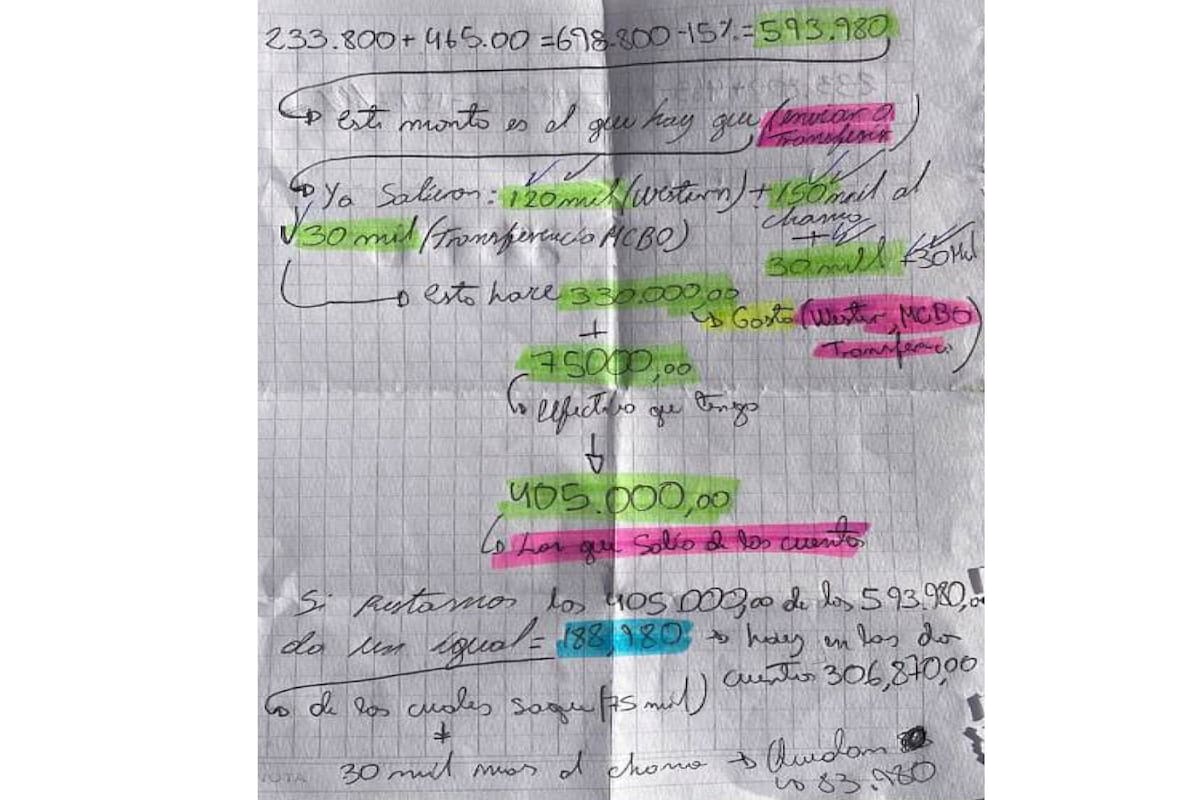 233.800 + 465.00 = 698.800 - 15% = 593.980
este monto es el que hay que (enviar o
Transferir)
Ya salieron: 120 mil (Western) + 150 mil al
chamo
30 mil (Transferencia MCBO) +
30 mil + 30 Mil
esto hace 330.000,00
Gasto (Wester, MCBO
Transferenci)
+
75000,00
efectivo que tengo
405.000,00
Lo que salio de las cuentas
Si restamos los 405.000,00 de los 593.980,00
da un igual = 188,980 → hay en las do
cuentas 306,870,00
de los cuales saque (75 mil)
+
30 mil mas al chamo → Quedan
83.980